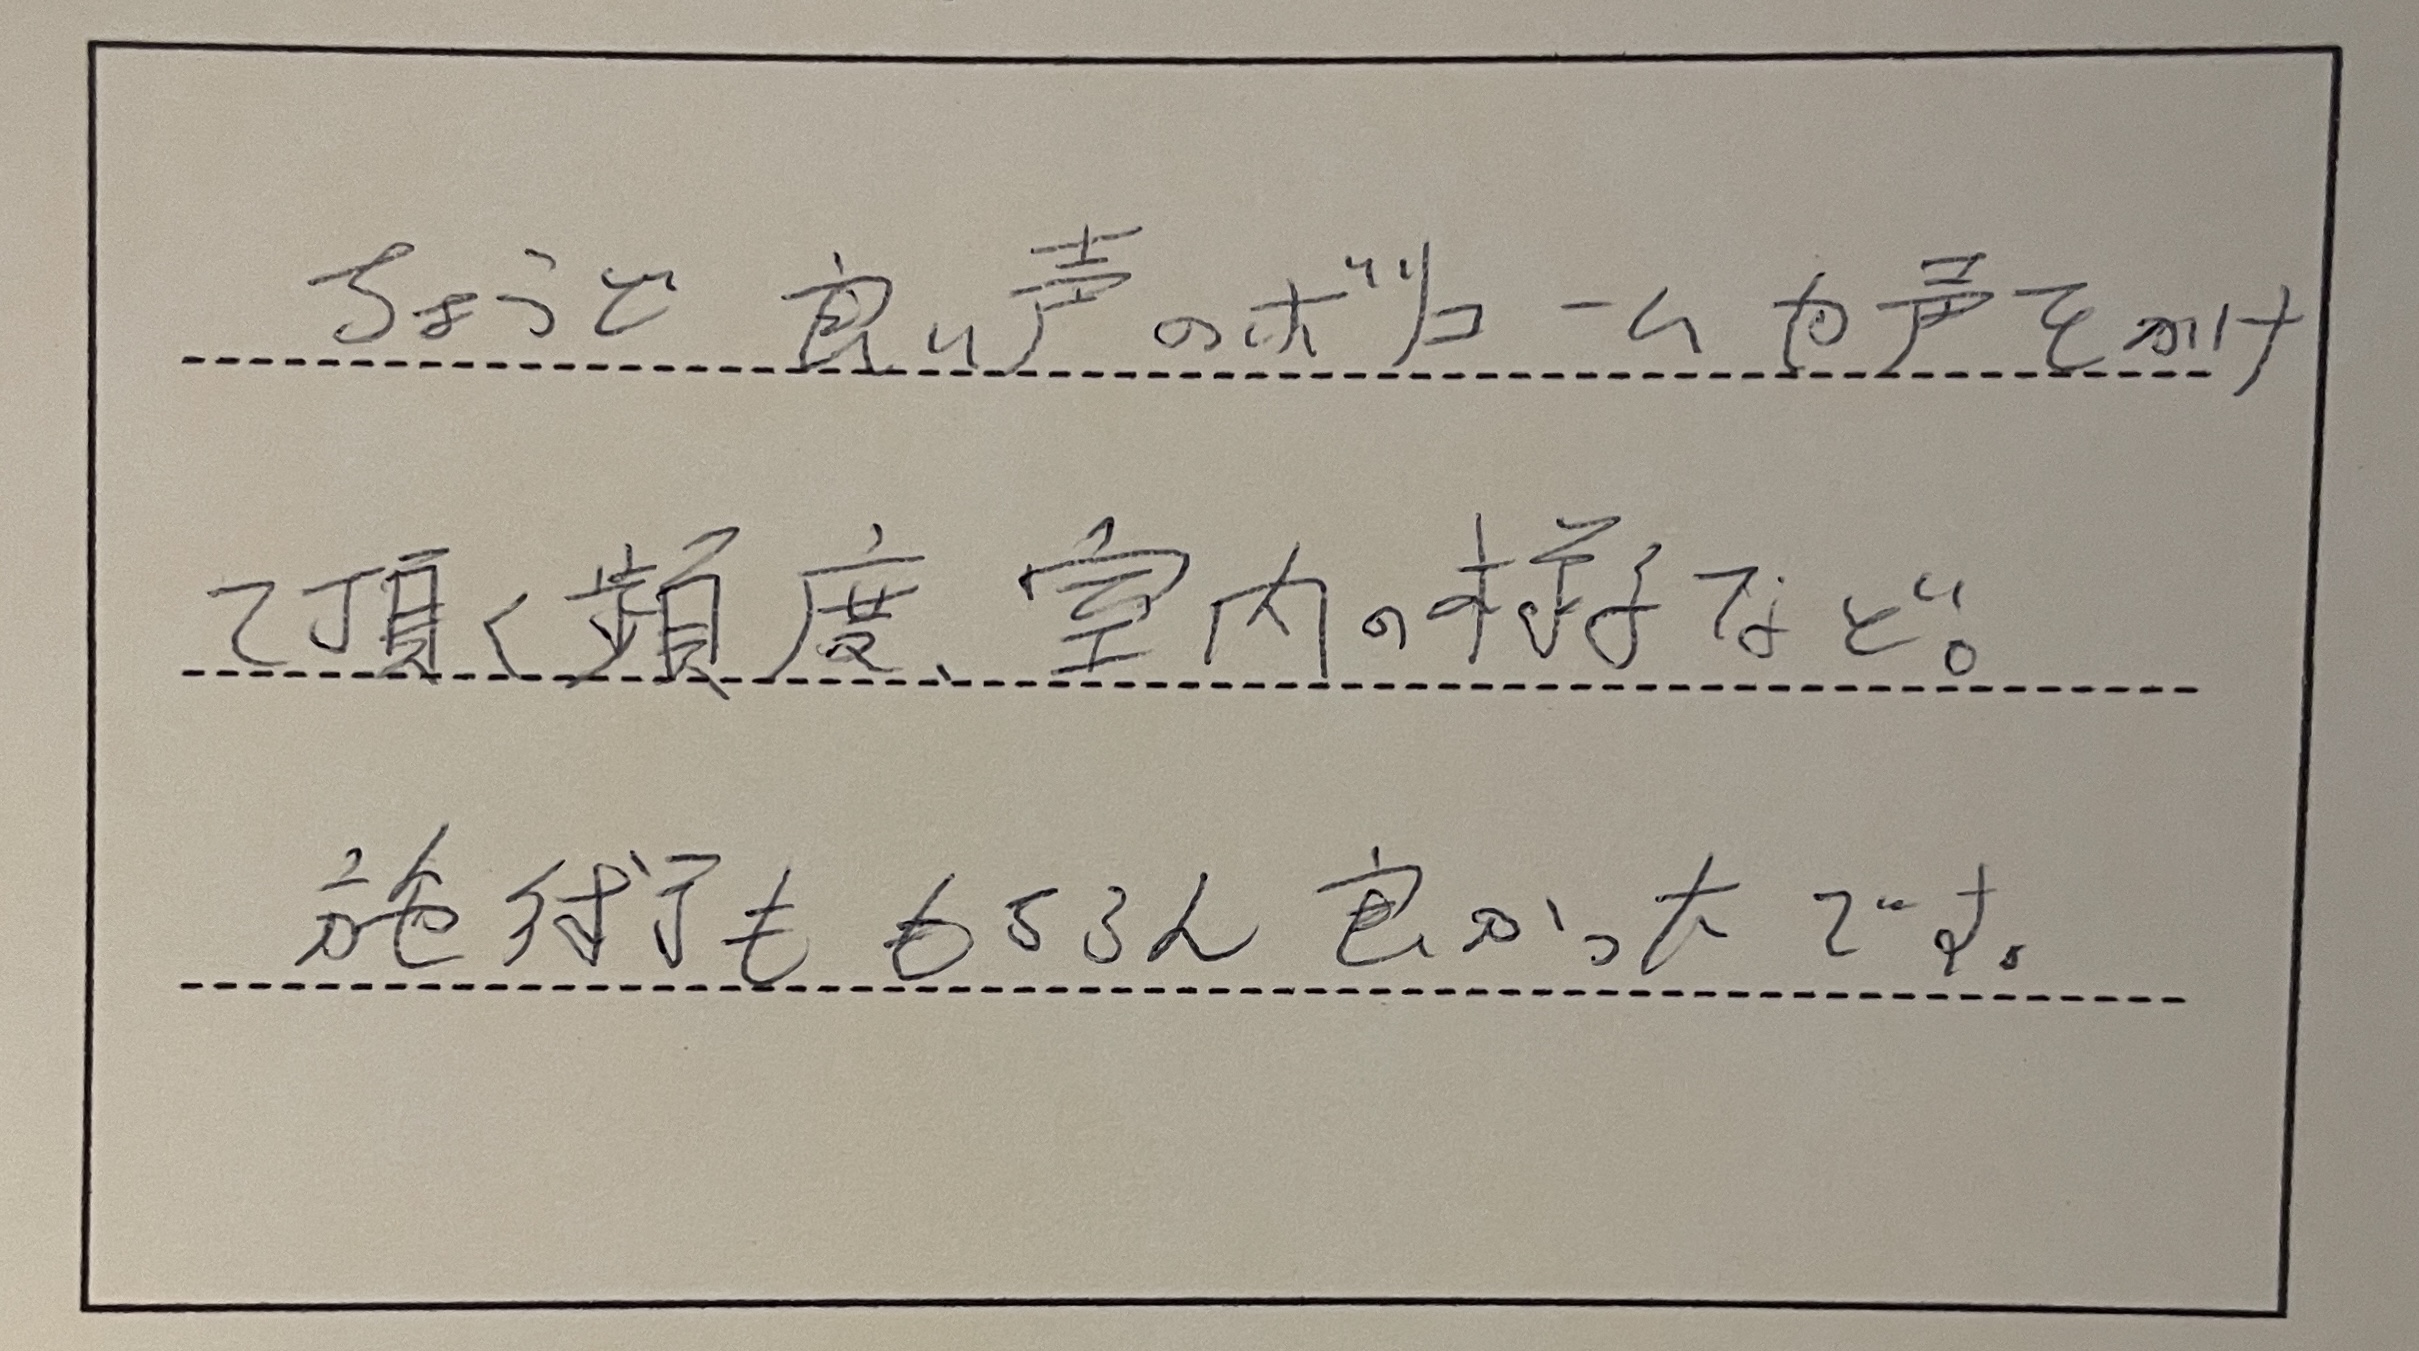 ちょうど良い声のボリュームや声をかけ
て頂く頻度、室内の様子など。
施術ももちろん良かったです。